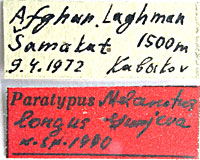 Afghan. Laghman
Šamakat 1500m
9.4.1972 Kabakov
Paratypus Melanotus
longus Gurjeva
n. sp. 1990